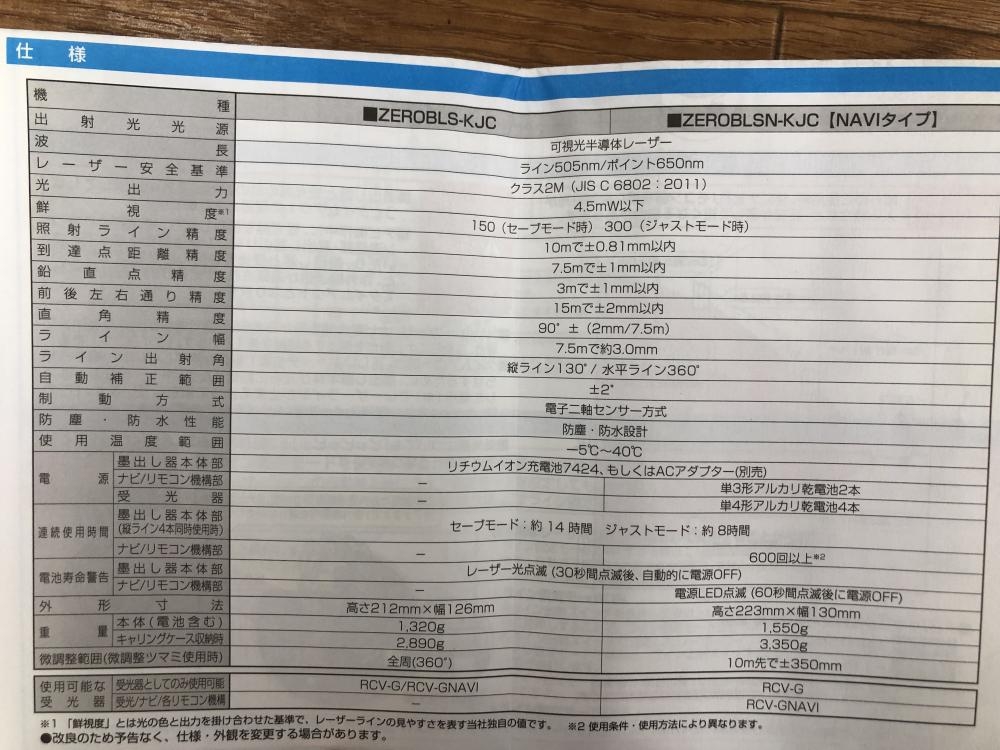 仕様
機種 ■ZEROBLS-KJC ■ZEROBLSN-KJC【NAVIタイプ】
出射光光源 可視光半導体レーザー
波長 ライン505nm/ポイント650nm
レーザー安全基準 クラス2M（JIS C 6802：2011）
光出力 4.5mW以下
鮮視度※1 150（セーブモード時） 300（ジャストモード時）
照射ライン精度 10mで±0.81mm以内
到達点距離精度 7.5mで±1mm以内
鉛直点精度 3mで±1mm以内
前後左右通り精度 15mで±2mm以内
直角精度 90°±（2mm/7.5m）
ライン幅 7.5mで約3.0mm
ライン出射角 縦ライン130°/ 水平ライン360°
自動補正範囲 ±2°
制動方式 電子二軸センサー方式
防塵・防水性能 防塵・防水設計
使用温度範囲 －5℃～40℃
電源 墨出し器本体部 リチウムイオン充電池7424、もしくはACアダプター(別売)
ナビ/リモコン機構部 － 単3形アルカリ乾電池2本
受光器 － 単4形アルカリ乾電池4本
連続使用時間 墨出し器本体部 (縦ライン4本同時使用時) セーブモード：約 14 時間 ジャストモード：約 8時間
ナビ/リモコン機構部 － 600回以上※2
電池寿命警告 墨出し器本体部 レーザー光点滅（30秒間点滅後、自動的に電源OFF）
ナビ/リモコン機構部 － 電源LED点滅（60秒間点滅後に電源OFF）
外形寸法 高さ212mm×幅126mm 高さ223mm×幅130mm
重量 本体(電池含む) 1,320g 1,550g
キャリングケース収納時 2,890g 3,350g
微調整範囲(微調整ツマミ使用時) 全周(360°) 10m先で±350mm
使用可能な受光器 受光器としてのみ使用可能 RCV-G/RCV-GNAVI RCV-G
受光/ナビ/各リモコン機構 － RCV-GNAVI
※1「鮮視度」とは光の色と出力を掛け合わせた基準で、レーザーラインの見やすさを表す当社独自の値です。 ※2 使用条件・使用方法により異なります。
●改良のため予告なく、仕様・外観を変更する場合があります。